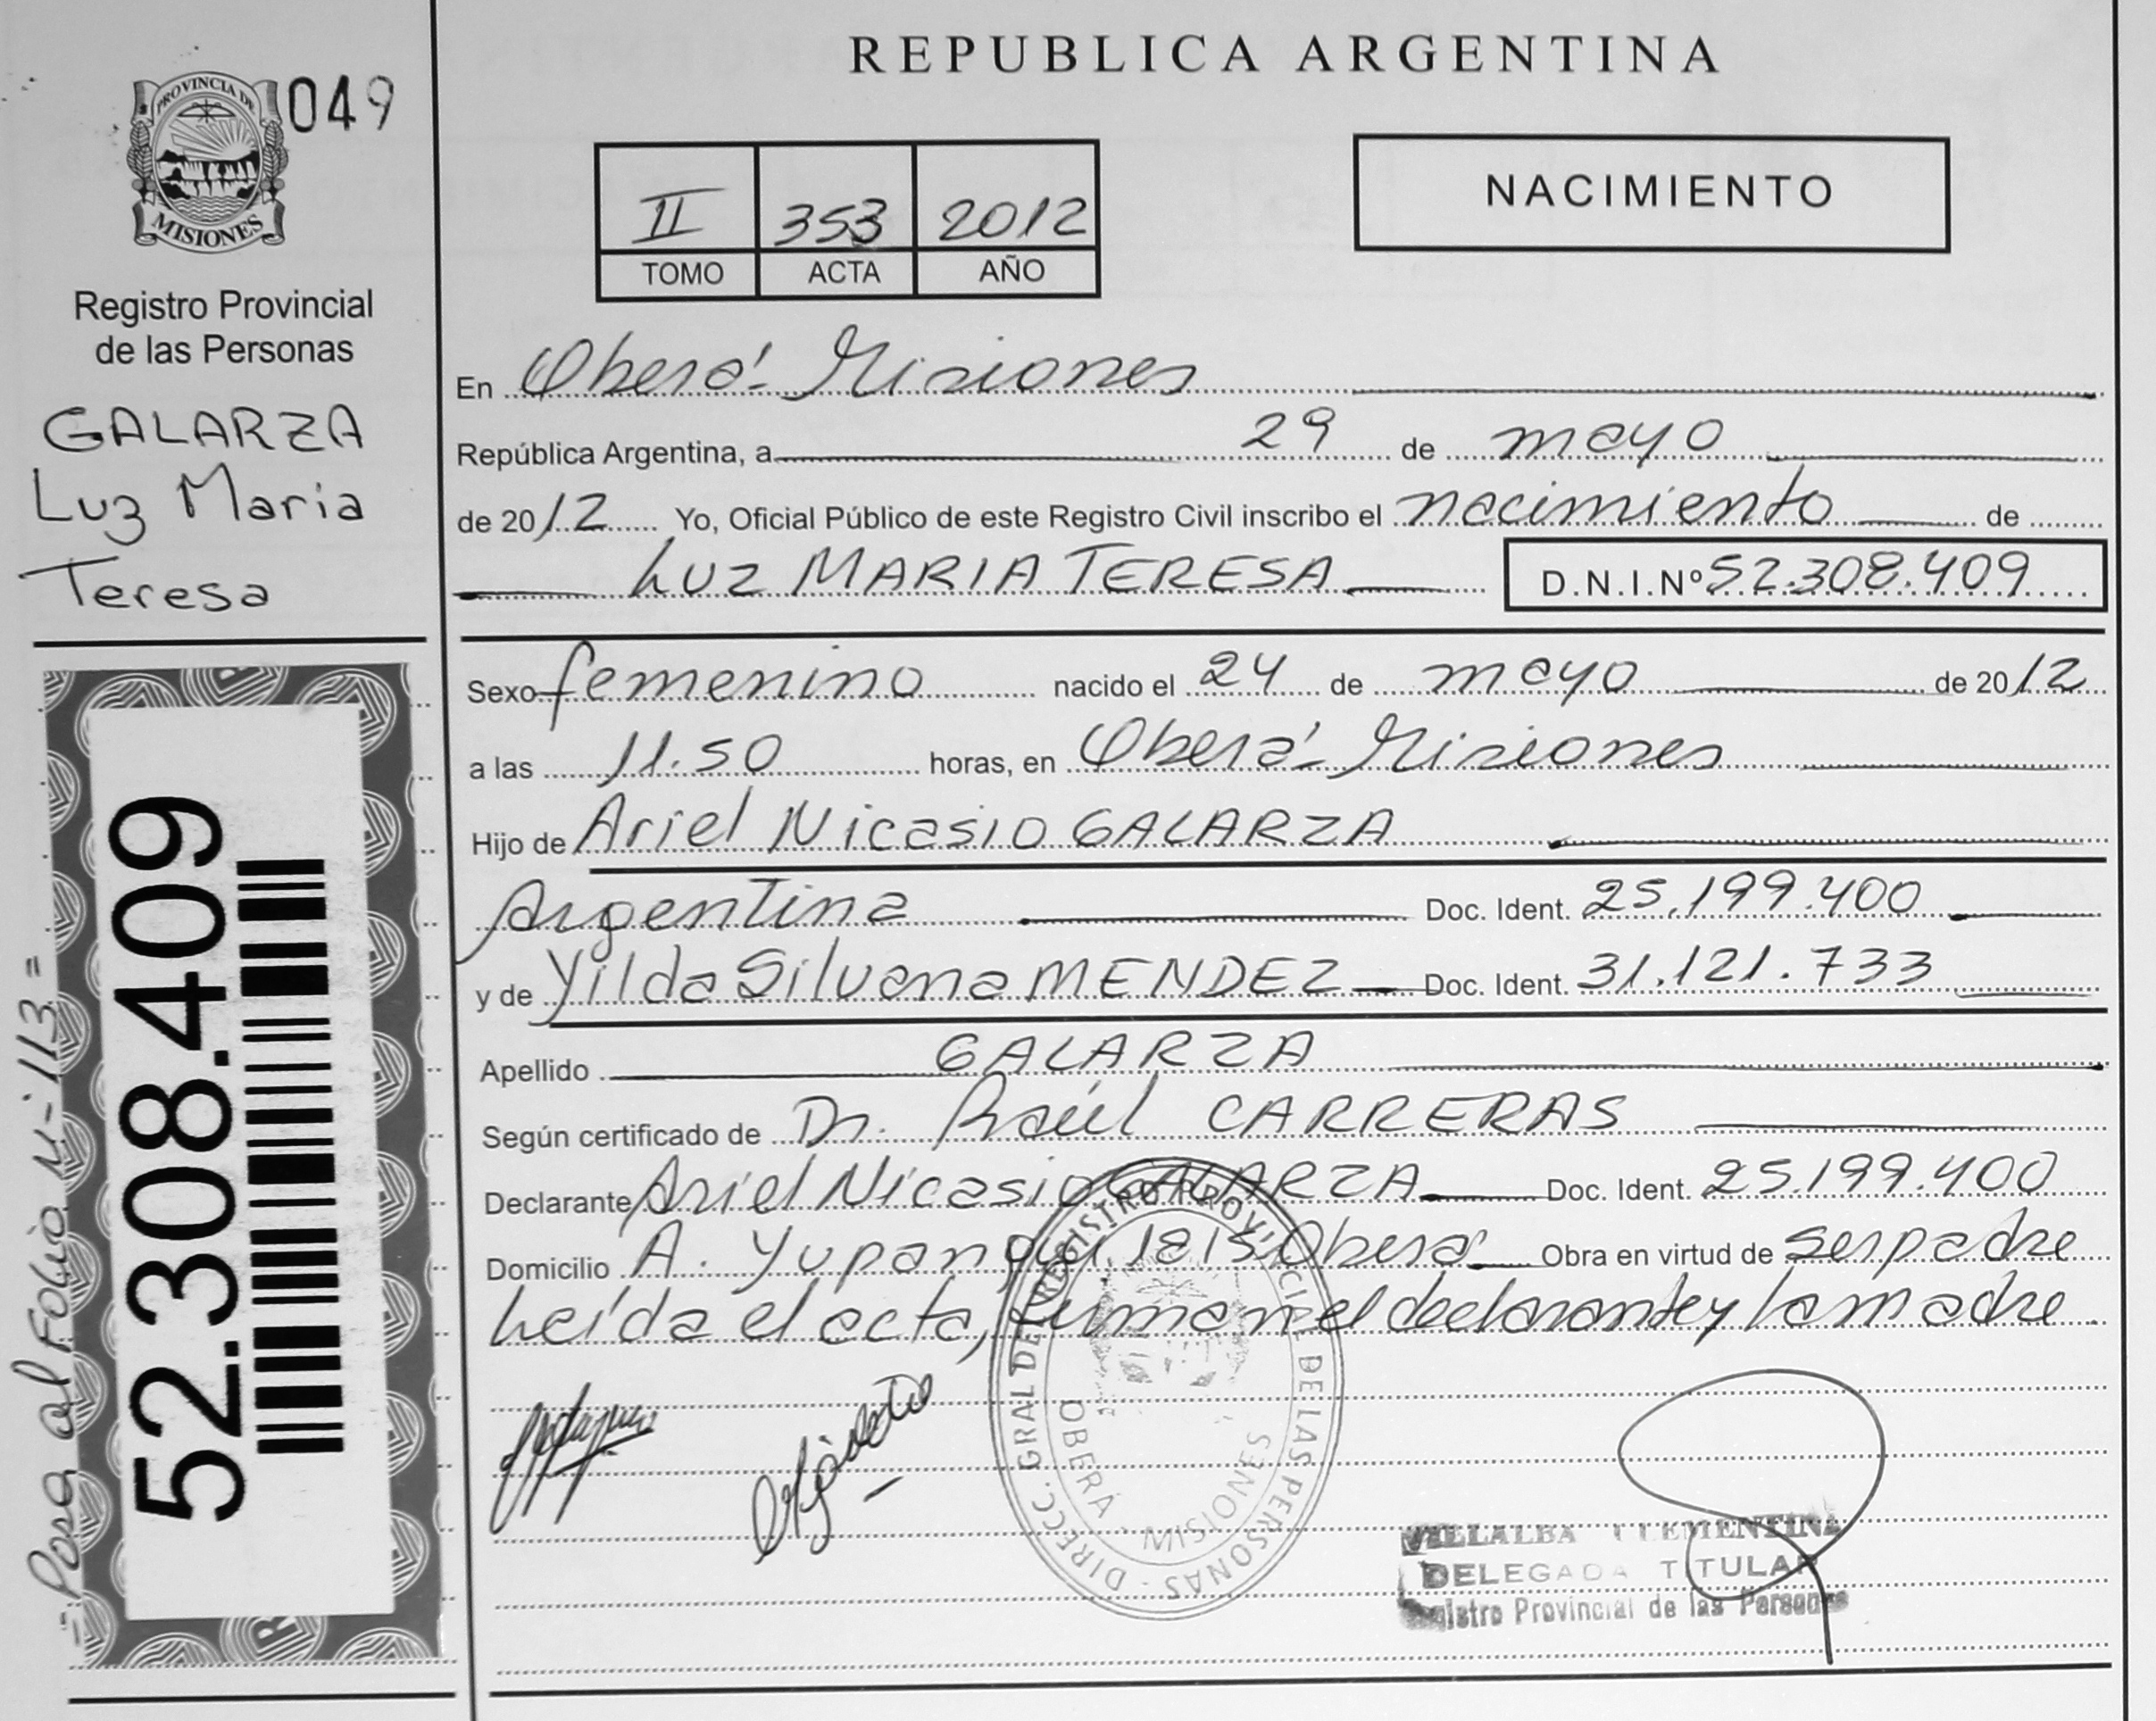 REPUBLICA ARGENTINA
PROVINCIA DE
MISIONES
049
Registro Provincial
de las Personas
GALARZA
Luz Maria
Teresa
52.308.409
=Pasa al Folio Nº 113=
II 353 2012
TOMO ACTA AÑO
NACIMIENTO
En Oberá - Misiones
República Argentina, a 29 de mayo
de 2012 Yo, Oficial Público de este Registro Civil inscribo el nacimiento de
LUZ MARIA TERESA D.N.I.Nº 52.308.409
Sexo femenino nacido el 24 de mayo de 2012
a las 11.50 horas, en Oberá - Misiones
Hijo de Ariel Nicasio GALARZA
Argentina Doc. Ident. 25.199.400
y de Yilda Silvana MENDEZ Doc. Ident. 31.121.733
Apellido GALARZA
Según certificado de Dr. Raúl CARRERAS
Declarante Ariel Nicasio GALARZA Doc. Ident. 25.199.400
Domicilio A. Yupanqui 1815 Oberá Obra en virtud de ser padre
Leída el acta, firman el declarante y la madre
DIRECC. GRAL DE REGISTRO PROVINCIAL DE LAS PERSONAS -
OBERÁ - MISIONES
VILLALBA CLEMENTINA
DELEGADA TITULAR
Registro Provincial de las Personas